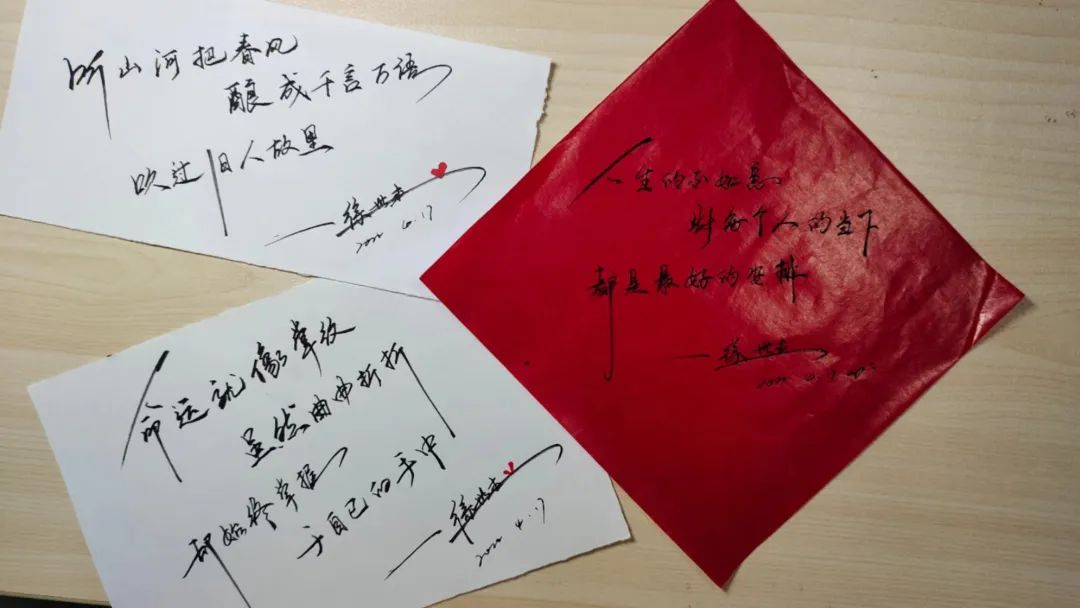 听山河把春风
酿成千言万语
吹过旧人故里
徐世
2022 4.17
人生的不如意
对每个人的当下
都是最好的安排
徐世
命运就像掌纹
虽然曲曲折折
却始终掌握
于自己的手中
徐世
2022 4.17